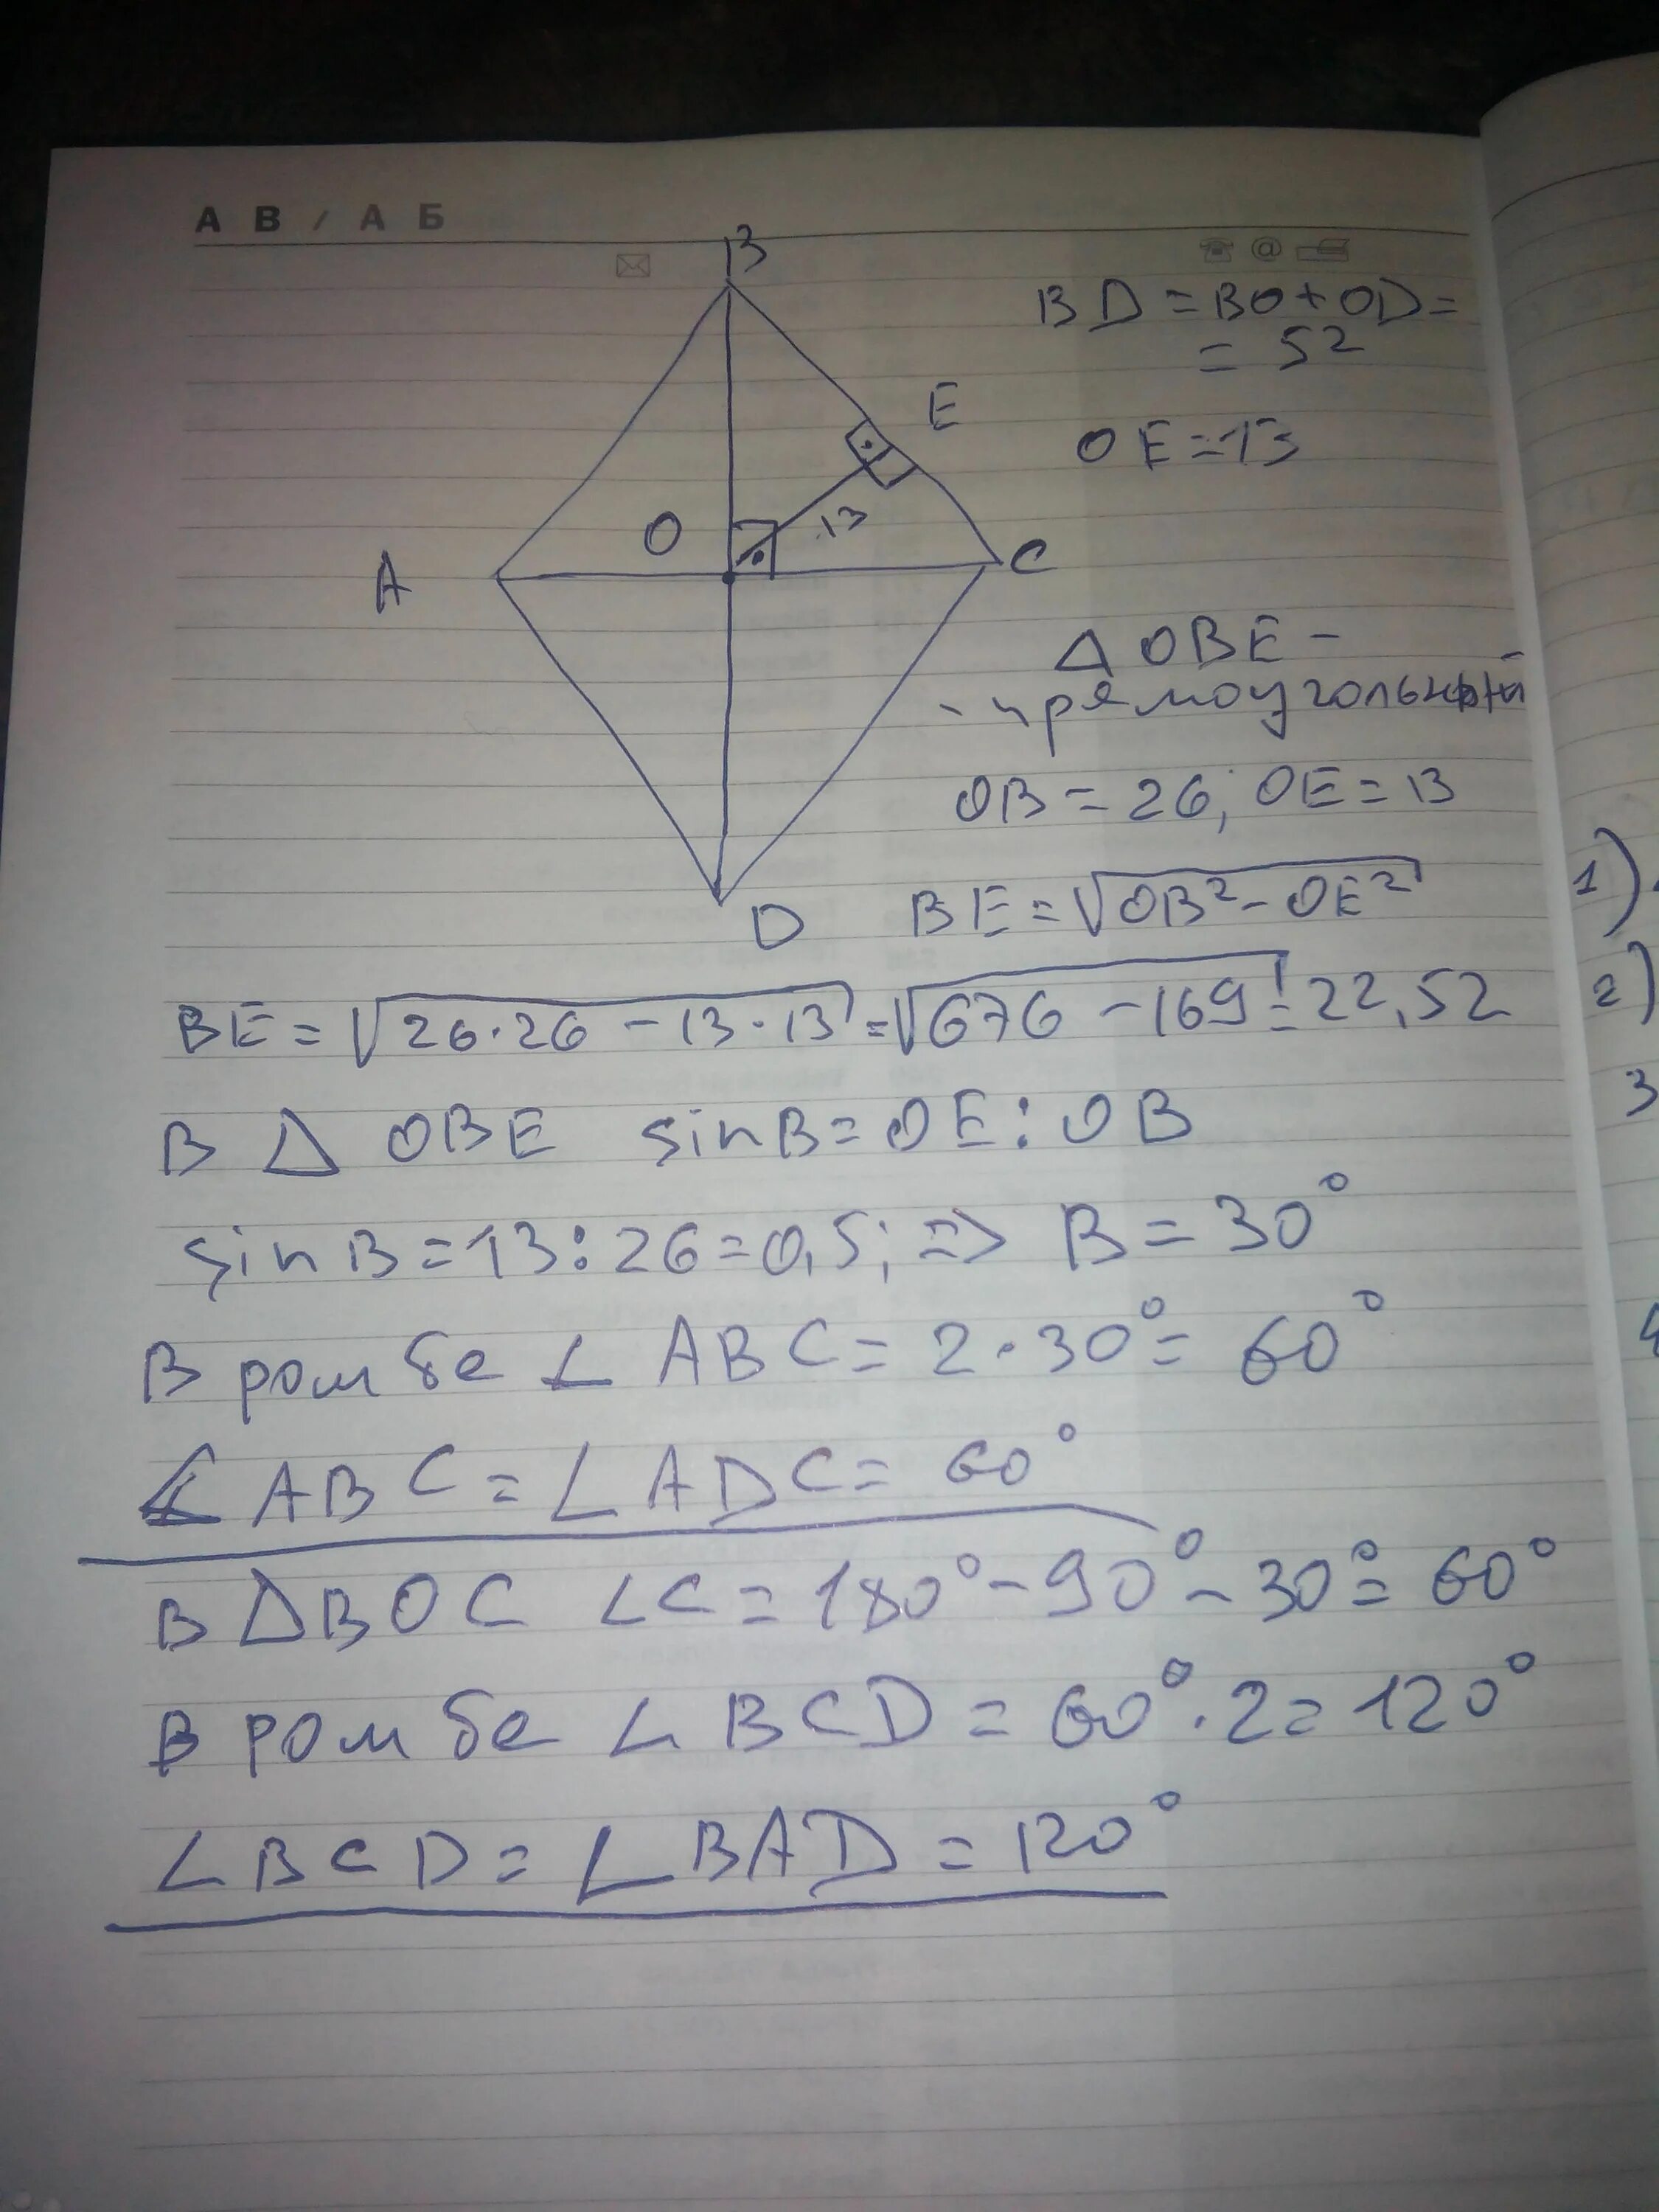 А В / А Б
B
BD = BO + OD =
= 52
E
OE = 13
O
13
A
C
△ OBE -
- прямоугольный
OB = 26; OE = 13
D
BE = √OB² - OE²
1)
BE = √26·26 - 13·13 = √676 - 169 = 22,52
2)
В △ OBE sin B = OE : OB
3
sin B = 13 : 26 = 0,5; => B = 30°
В ромбе ∠ ABC = 2·30° = 60°
∠ ABC = ∠ ADC = 60°
В △ BOC ∠C = 180° - 90° - 30° = 60°
В ромбе ∠ BCD = 60°·2 = 120°
∠BCD = ∠BAD = 120°